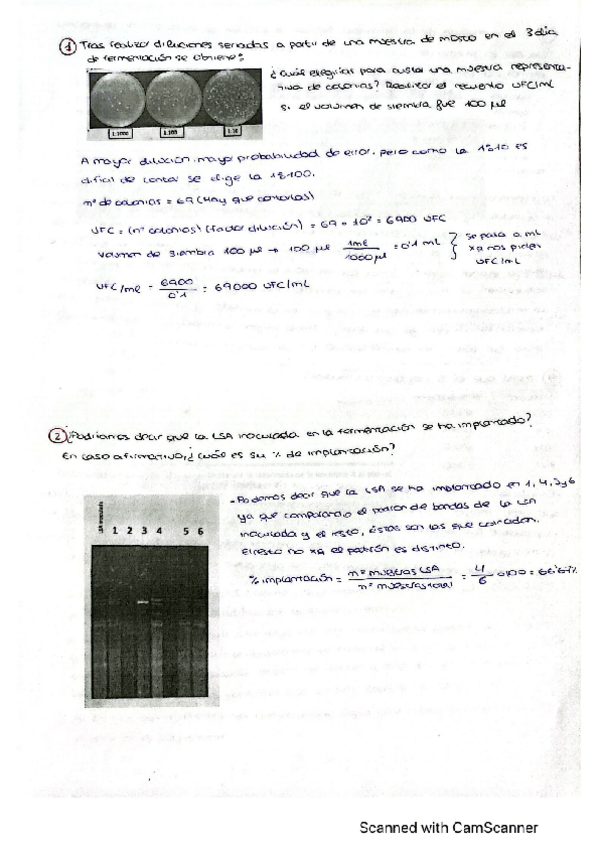 ① Tras realizar diluciones seriadas a partir de una muestra de mosto en el 3 día
de fermentación se obtiene:
¿Cuál elegirías para contar una muestra representa-
tiva de colonias? Realizar el recuento UFC/mL
si el volumen de siembra fue 100 µl
1:1000 1:100 1:10
A mayor dilución, mayor probabilidad de error, pero como la 1:10 es
difícil de contar se elige la 1:100.
nº de colonias = 69 (Hay que contarlas)
UFC = (nº colonias) (factor dilución) = 69 · 10² = 6900 UFC
Volumen de siembra 100 µl → 100 µl 1ml/1000µl = 0'1 mL
se pasa a mL
xq nos piden
UFC/mL
UFC/mL = 6900/0'1 = 69000 UFC/mL
② ¿Podríamos decir que la LSA inoculada en la fermentación se ha implantado?
En caso afirmativo, ¿cuál es su % de implantación?
LSA inoculada 1 2 3 4 5 6
- Podemos decir que la LSA se ha implantado en 1, 4, 5 y 6
ya que comparando el patrón de bandas de la LSA
inoculada y el resto, éstas son las que coinciden.
El resto no xq el patrón es distinto.
% implantación = nº muestras LSA/nº muestras total = 4/6 · 100 = 66'67%
Scanned with CamScanner